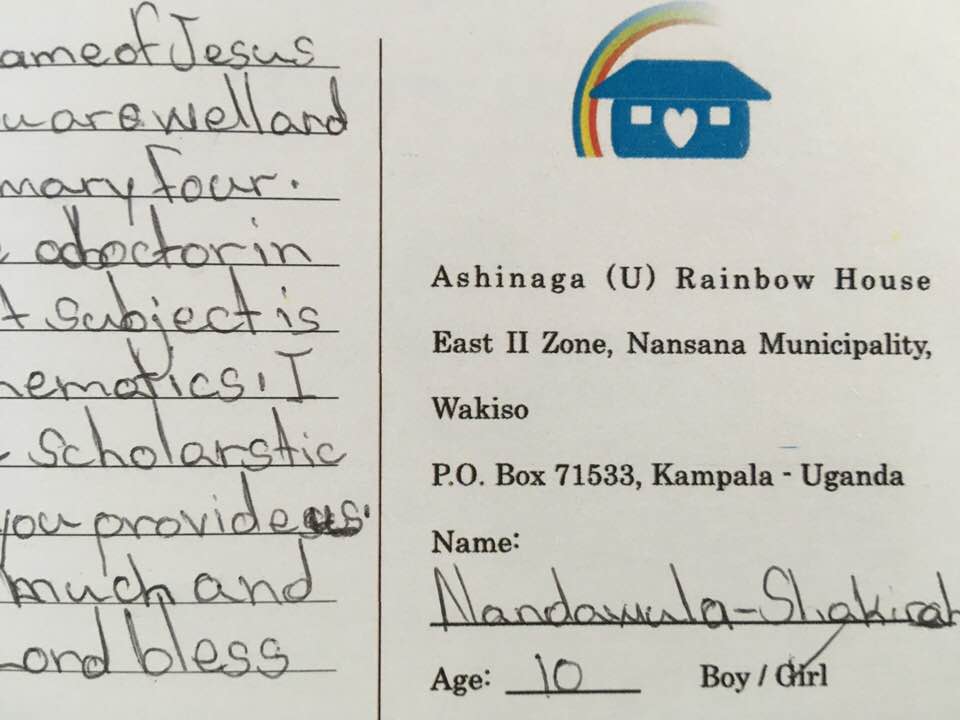 ame of Jesus
u are well and
mary four.
a doctor in
t subject is
hematics. I
scholarstic
you provide us.
much and
ord bless
Ashinaga (U) Rainbow House
East II Zone, Nansana Municipality,
Wakiso
P.O. Box 71533, Kampala - Uganda
Name:
Nandawula-Shakirah
Age: 10 Boy / Girl